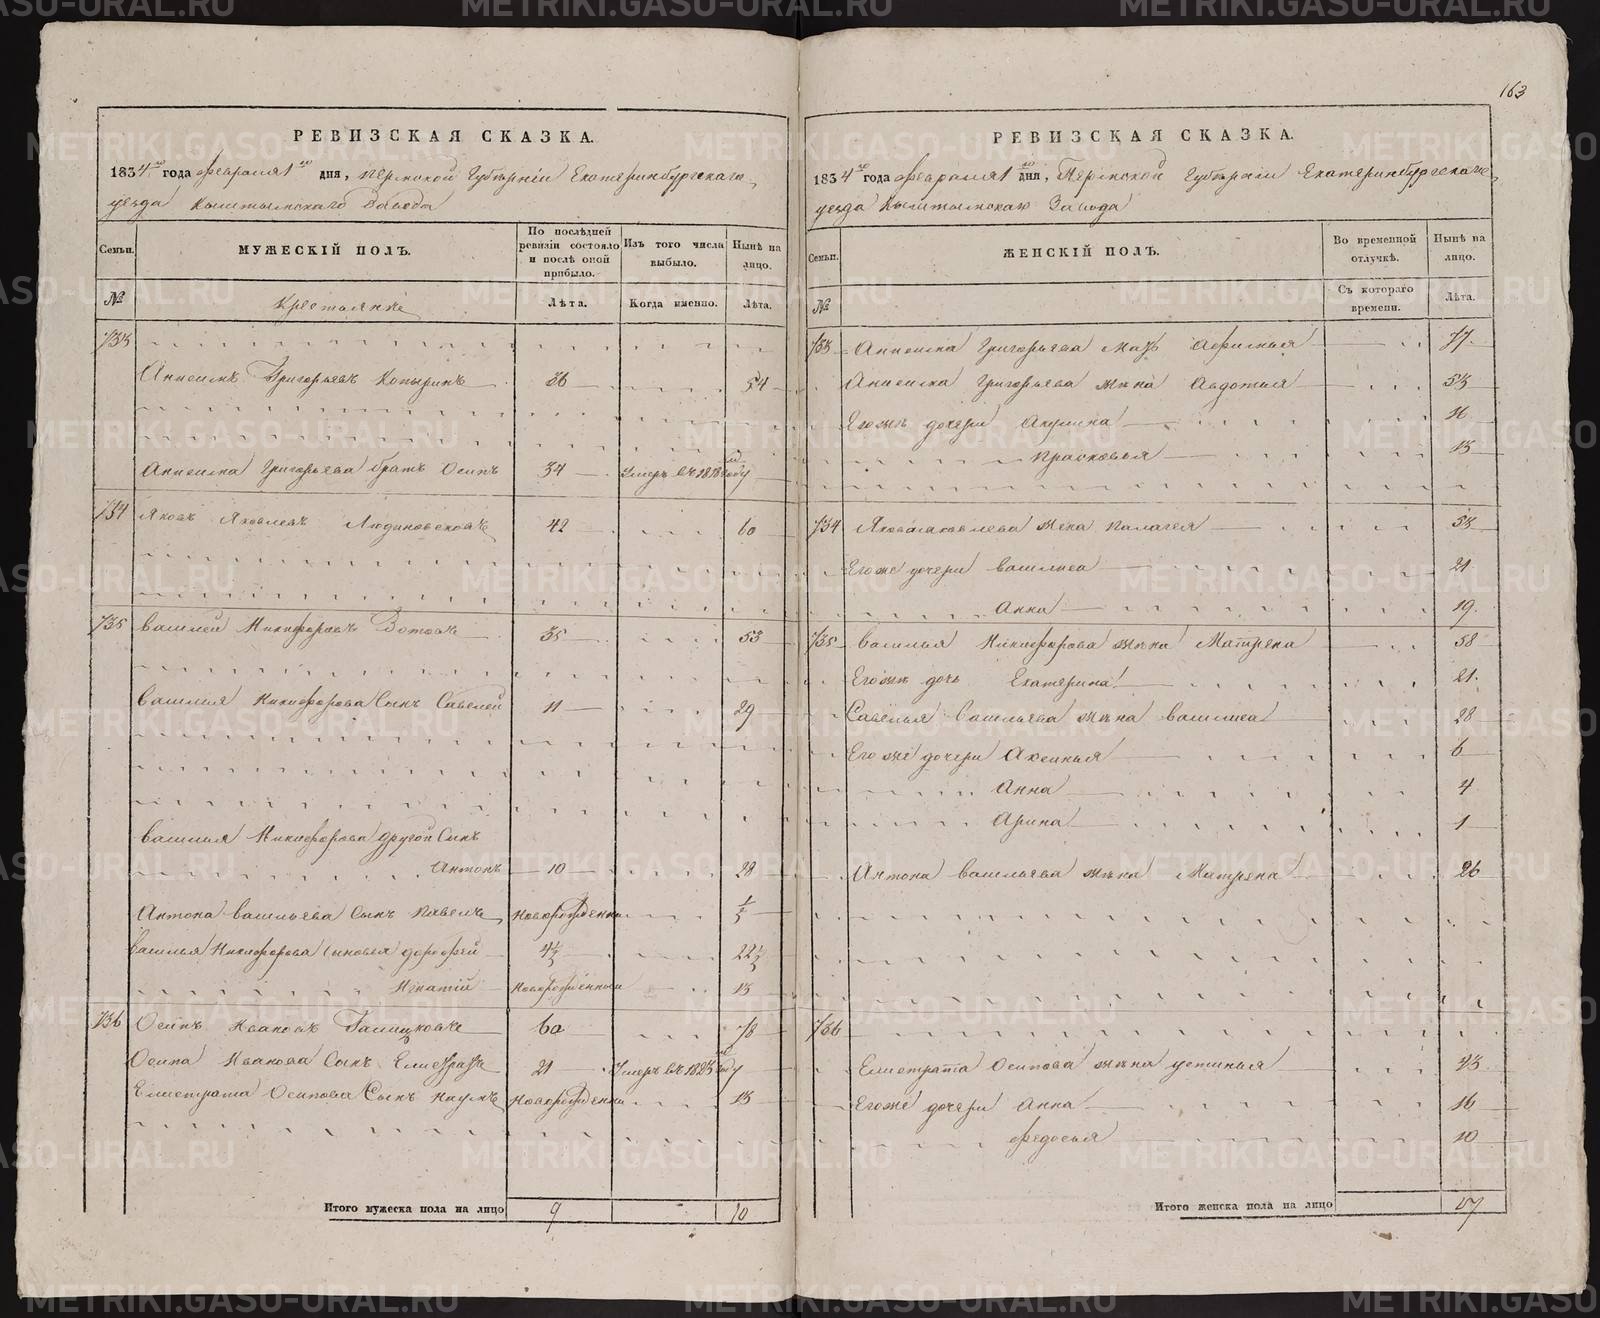 163
РЕВИЗСКАЯ СКАЗКА.
1834го года февраля 1го дня, Пермской Губернiи Екатеринбургскаго
уезда Кыштымскаго Завода
Семьи. МУЖЕСКIЙ ПОЛЪ. По послѣдней ревизiи состояло и послѣ оной прибыло. Изъ того числа выбыло. Нынѣ на лицо.
№ Крестьяне Лѣта. Когда именно. Лѣта.
733
Анисимъ Григорьевъ Копыринъ 36 54
Анисима Григорьева братъ Осипъ 34 Умеръ въ 1818 году
734 Яковъ Яковлевъ 42 60
735 Василей Никифоровъ Зотовъ 35 53
Василья Никифорова Сынъ Савелей 11 29
Василья Никифорова другой Сынъ
Антонъ 10 28
Антона Васильева Сынъ Павелъ Новорожденны 1/2
Василья Никифорова сыновья дорофей 4 1/2 22 1/2
Игнатiй Новорожденный 13
736 Осипъ Ивановъ Галицковъ 60 78
Осипа Иванова Сынъ Елистратъ 21 Умеръ въ 1823 году
Елистрата Осипова Сынъ Наумъ Новорожденны 13
Итого мужеска пола на лицо 9 10
РЕВИЗСКАЯ СКАЗКА.
1834го года февраля 1го дня, Пермской Губернiи Екатеринбургскаго
уезда Кыштымскаго Завода
Семьи. ЖЕНСКIЙ ПОЛЪ. Во временной отлучкѣ. Нынѣ на лицо.
№ Съ котораго времени. Лѣта.
733 Анисима Григорьева мать Афимья 77
Анисима Григорьева жена Авдотья 53
Егоже дочери Акулина 16
Прасковья 13
734 Якова Яковлева жена Палагея 53
Егоже дочери Василиса 21
Анна 19
735 Василья Никифорова жена Матрена 58
Егоже дочь Екатерина 21
Савелья Васильева жена Василиса 28
Егоже дочери Аксинья 6
Анна 4
Арина 1
Антона Васильева жена Матрена 26
736
Елистрата Осипова жена устинья 43
Егоже дочери Анна 16
федосья 10
Итого женска пола на лицо 17
METRIKI.GASO-URAL.RU